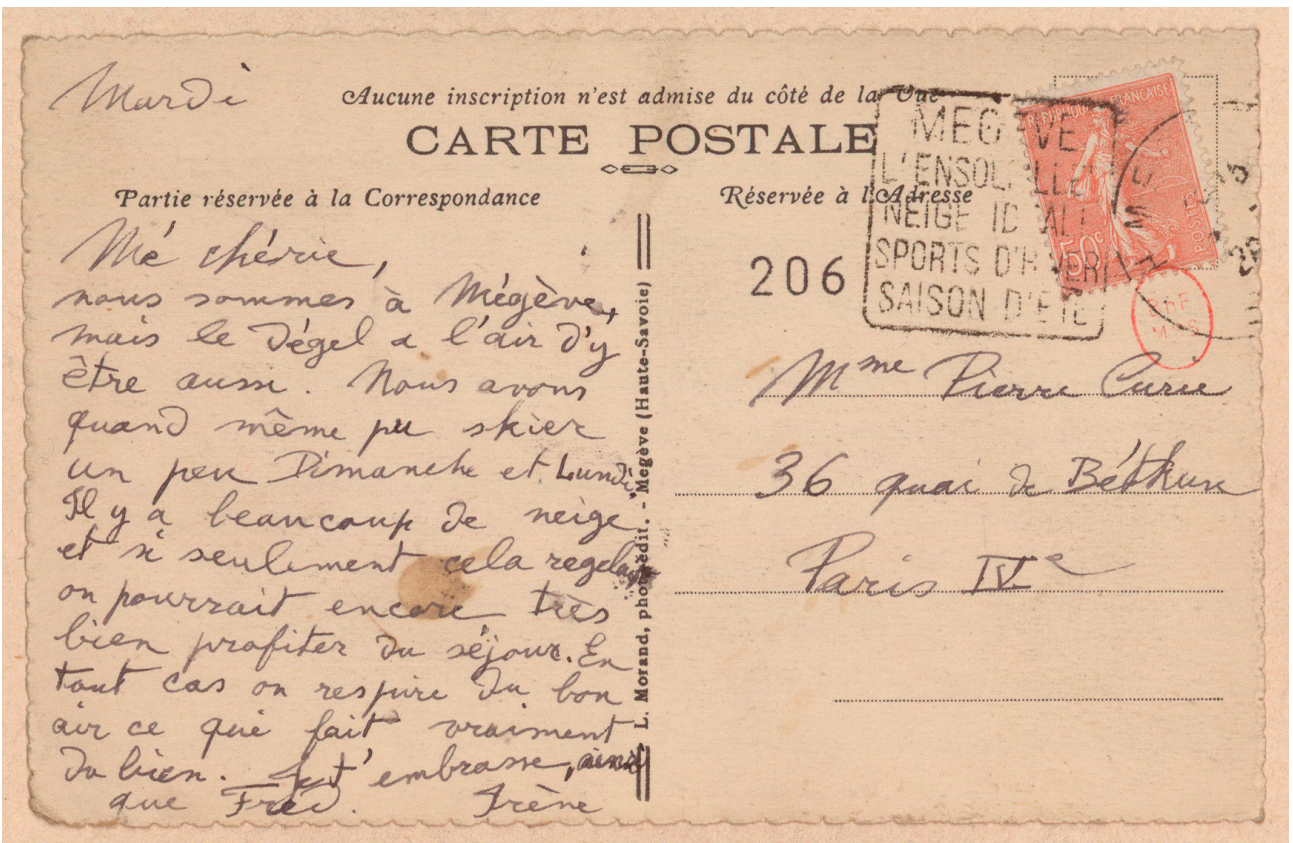 Mardi
Aucune inscription n'est admise du côté de la Vue
CARTE POSTALE
Partie réservée à la Correspondance
Réservée à l'Adresse
Mé chérie,
nous sommes à Mégève,
mais le dégel a l'air d'y
être aussi. Nous avons
quand même pu skier
un peu Dimanche et Lundi
Il y a beaucoup de neige
et si seulement cela regelait
on pourrait encore très
bien profiter du séjour. En
tout cas on respire du bon
air ce qui fait vraiment
du bien. Je t'embrasse, ainsi
que Fred. Irène
L. Morand, phot. édit. - Megève (Haute-Savoie)
206
MEGÈVE
L'ENSOLEILLÉE
NEIGE IDÉALE
SPORTS D'HIVER
SAISON D'ÉTÉ
RÉPUBLIQUE FRANÇAISE
50c
POSTES
Mme Pierre Curie
36 quai de Béthune
Paris IVe